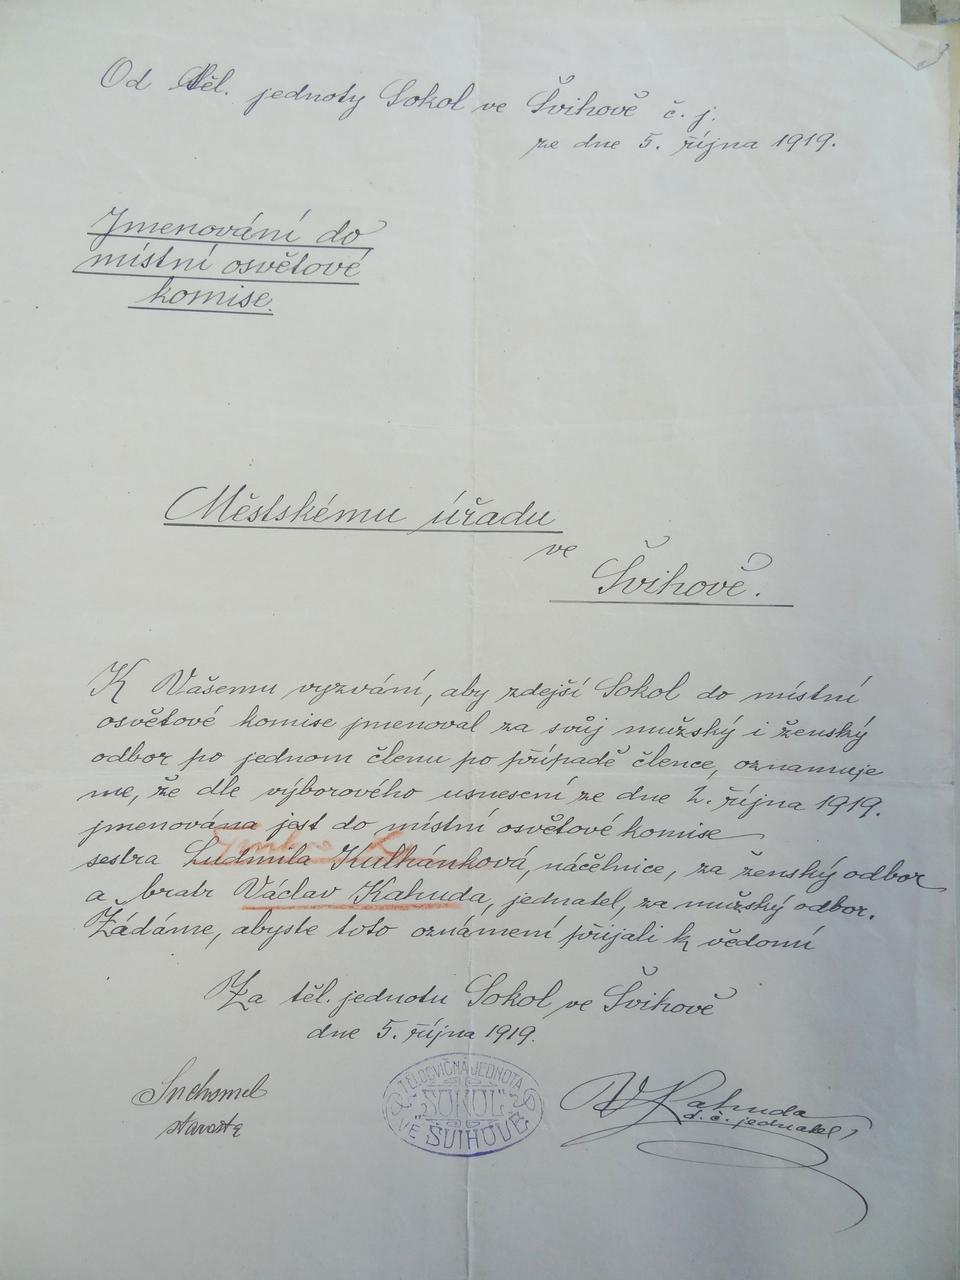 Od těl. jednoty Sokol ve Švihově č. j.
ze dne 5. října 1919.
Jmenování do
místní osvětové
komise.
Městskému úřadu
ve
Švihově.
K Vašemu vyzvání, aby zdejší Sokol do místní
osvětové komise jmenoval za svůj mužský i ženský
odbor po jednom členu po případě člence, oznamuje
me, že dle výborového usnesení ze dne 2. října 1919.
jmenována jest do místní osvětové komise
sestra Ludmila Kulhánková, náčelnice, za ženský odbor
a bratr Václav Kahuda, jednatel, za mužský odbor.
Žádáme, abyste toto oznámení přijali k vědomí
Za těl. jednotu Sokol ve Švihově
dne 5. října 1919.
Suchomel
starosta
TĚLOCVIČNÁ JEDNOTA
"SOKOL"
VE ŠVIHOVĚ
V Kahuda
d. č. jednatel